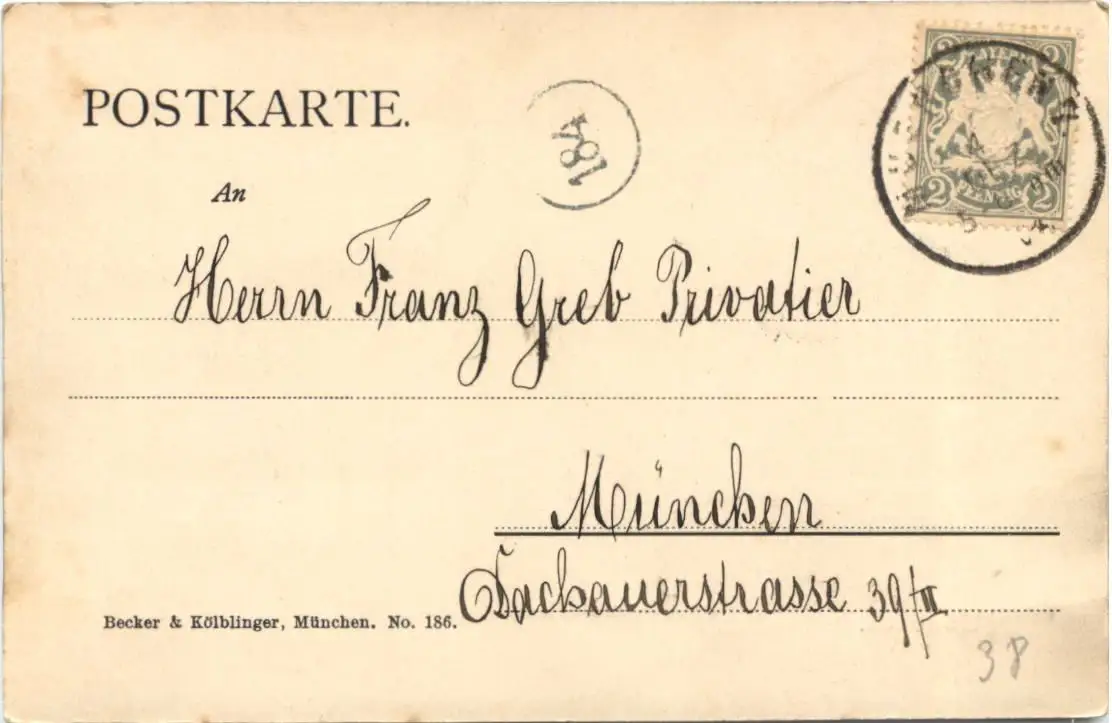 POSTKARTE.
184
An
BAYERN
2 2
2 PFENNIG 2
Herrn Franz Greb Privatier
München
Dachauerstrasse 39/II
Becker & Kölblinger, München. No. 186.
38